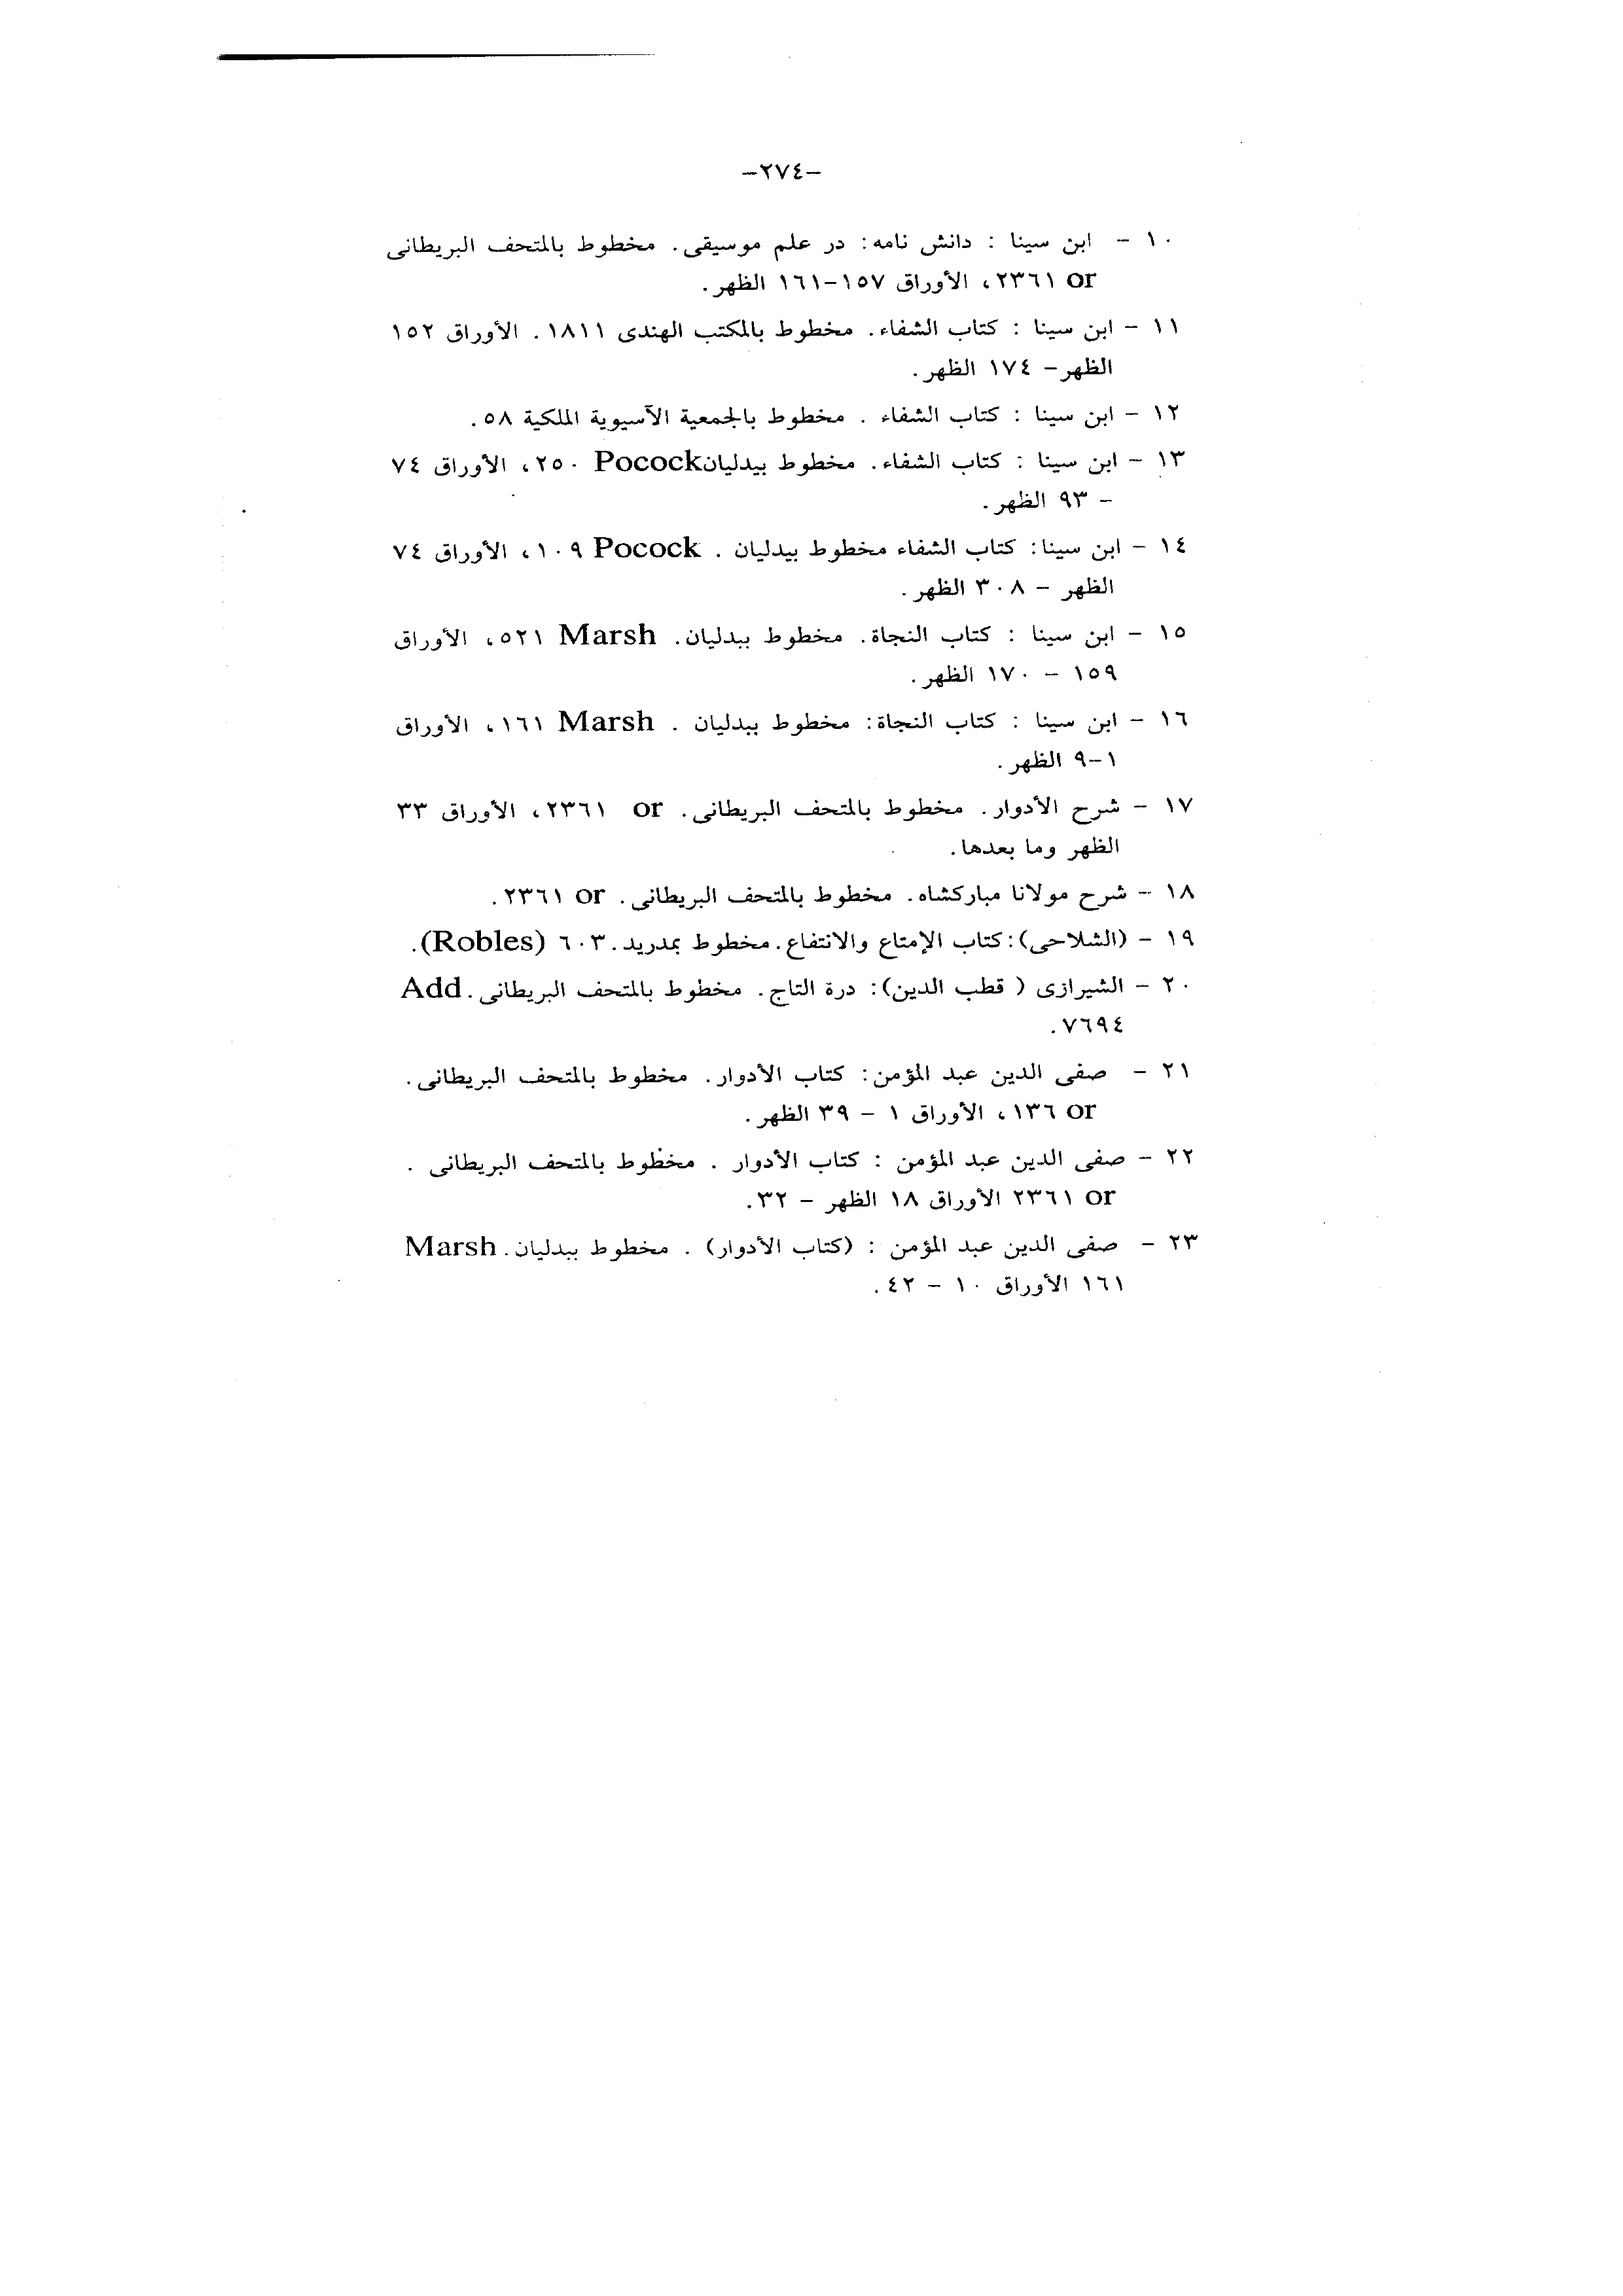 -٢٧٤-
١٠ - ابن سينا : دانش نامه: در علم موسيقى. مخطوط بالمتحف البريطانى
or ٢٣٦١، الأوراق ١٥٧-١٦١ الظهر.
١١ - ابن سينا : كتاب الشفاء. مخطوط بالمكتب الهندى ١٨١١. الأوراق ١٥٢
الظهر- ١٧٤ الظهر.
١٢ - ابن سينا : كتاب الشفاء . مخطوط بالجمعية الآسيوية الملكية ٥٨.
١٣ - ابن سينا : كتاب الشفاء. مخطوط بيدليان Pocock ٢٥٠، الأوراق ٧٤
- ٩٣ الظهر.
١٤ - ابن سينا: كتاب الشفاء مخطوط بيدليان . Pocock ١٠٩، الأوراق ٧٤
الظهر - ٣٠٨ الظهر.
١٥ - ابن سينا : كتاب النجاة. مخطوط ببدليان. Marsh ٥٢١، الأوراق
١٥٩ - ١٧٠ الظهر.
١٦ - ابن سينا : كتاب النجاة: مخطوط ببدليان . Marsh ١٦١، الأوراق
١-٩ الظهر.
١٧ - شرح الأدوار. مخطوط بالمتحف البريطانى. or ٢٣٦١، الأوراق ٣٣
الظهر وما بعدها.
١٨ - شرح مولانا مباركشاه. مخطوط بالمتحف البريطانى. or ٢٣٦١.
١٩ - (الشلاحى): كتاب الإمتاع والانتفاع. مخطوط بمدريد. ٦٠٣ (Robles).
٢٠ - الشيرازى ( قطب الدين): درة التاج. مخطوط بالمتحف البريطانى. Add
٧٦٩٤.
٢١ - صفى الدين عبد المؤمن: كتاب الأدوار. مخطوط بالمتحف البريطانى.
or ١٣٦، الأوراق ١ - ٣٩ الظهر.
٢٢ - صفى الدين عبد المؤمن : كتاب الأدوار . مخطوط بالمتحف البريطانى .
or ٢٣٦١ الأوراق ١٨ الظهر - ٣٢.
٢٣ - صفى الدين عبد المؤمن : (كتاب الأدوار) . مخطوط ببدليان. Marsh
١٦١ الأوراق ١٠ - ٤٢.